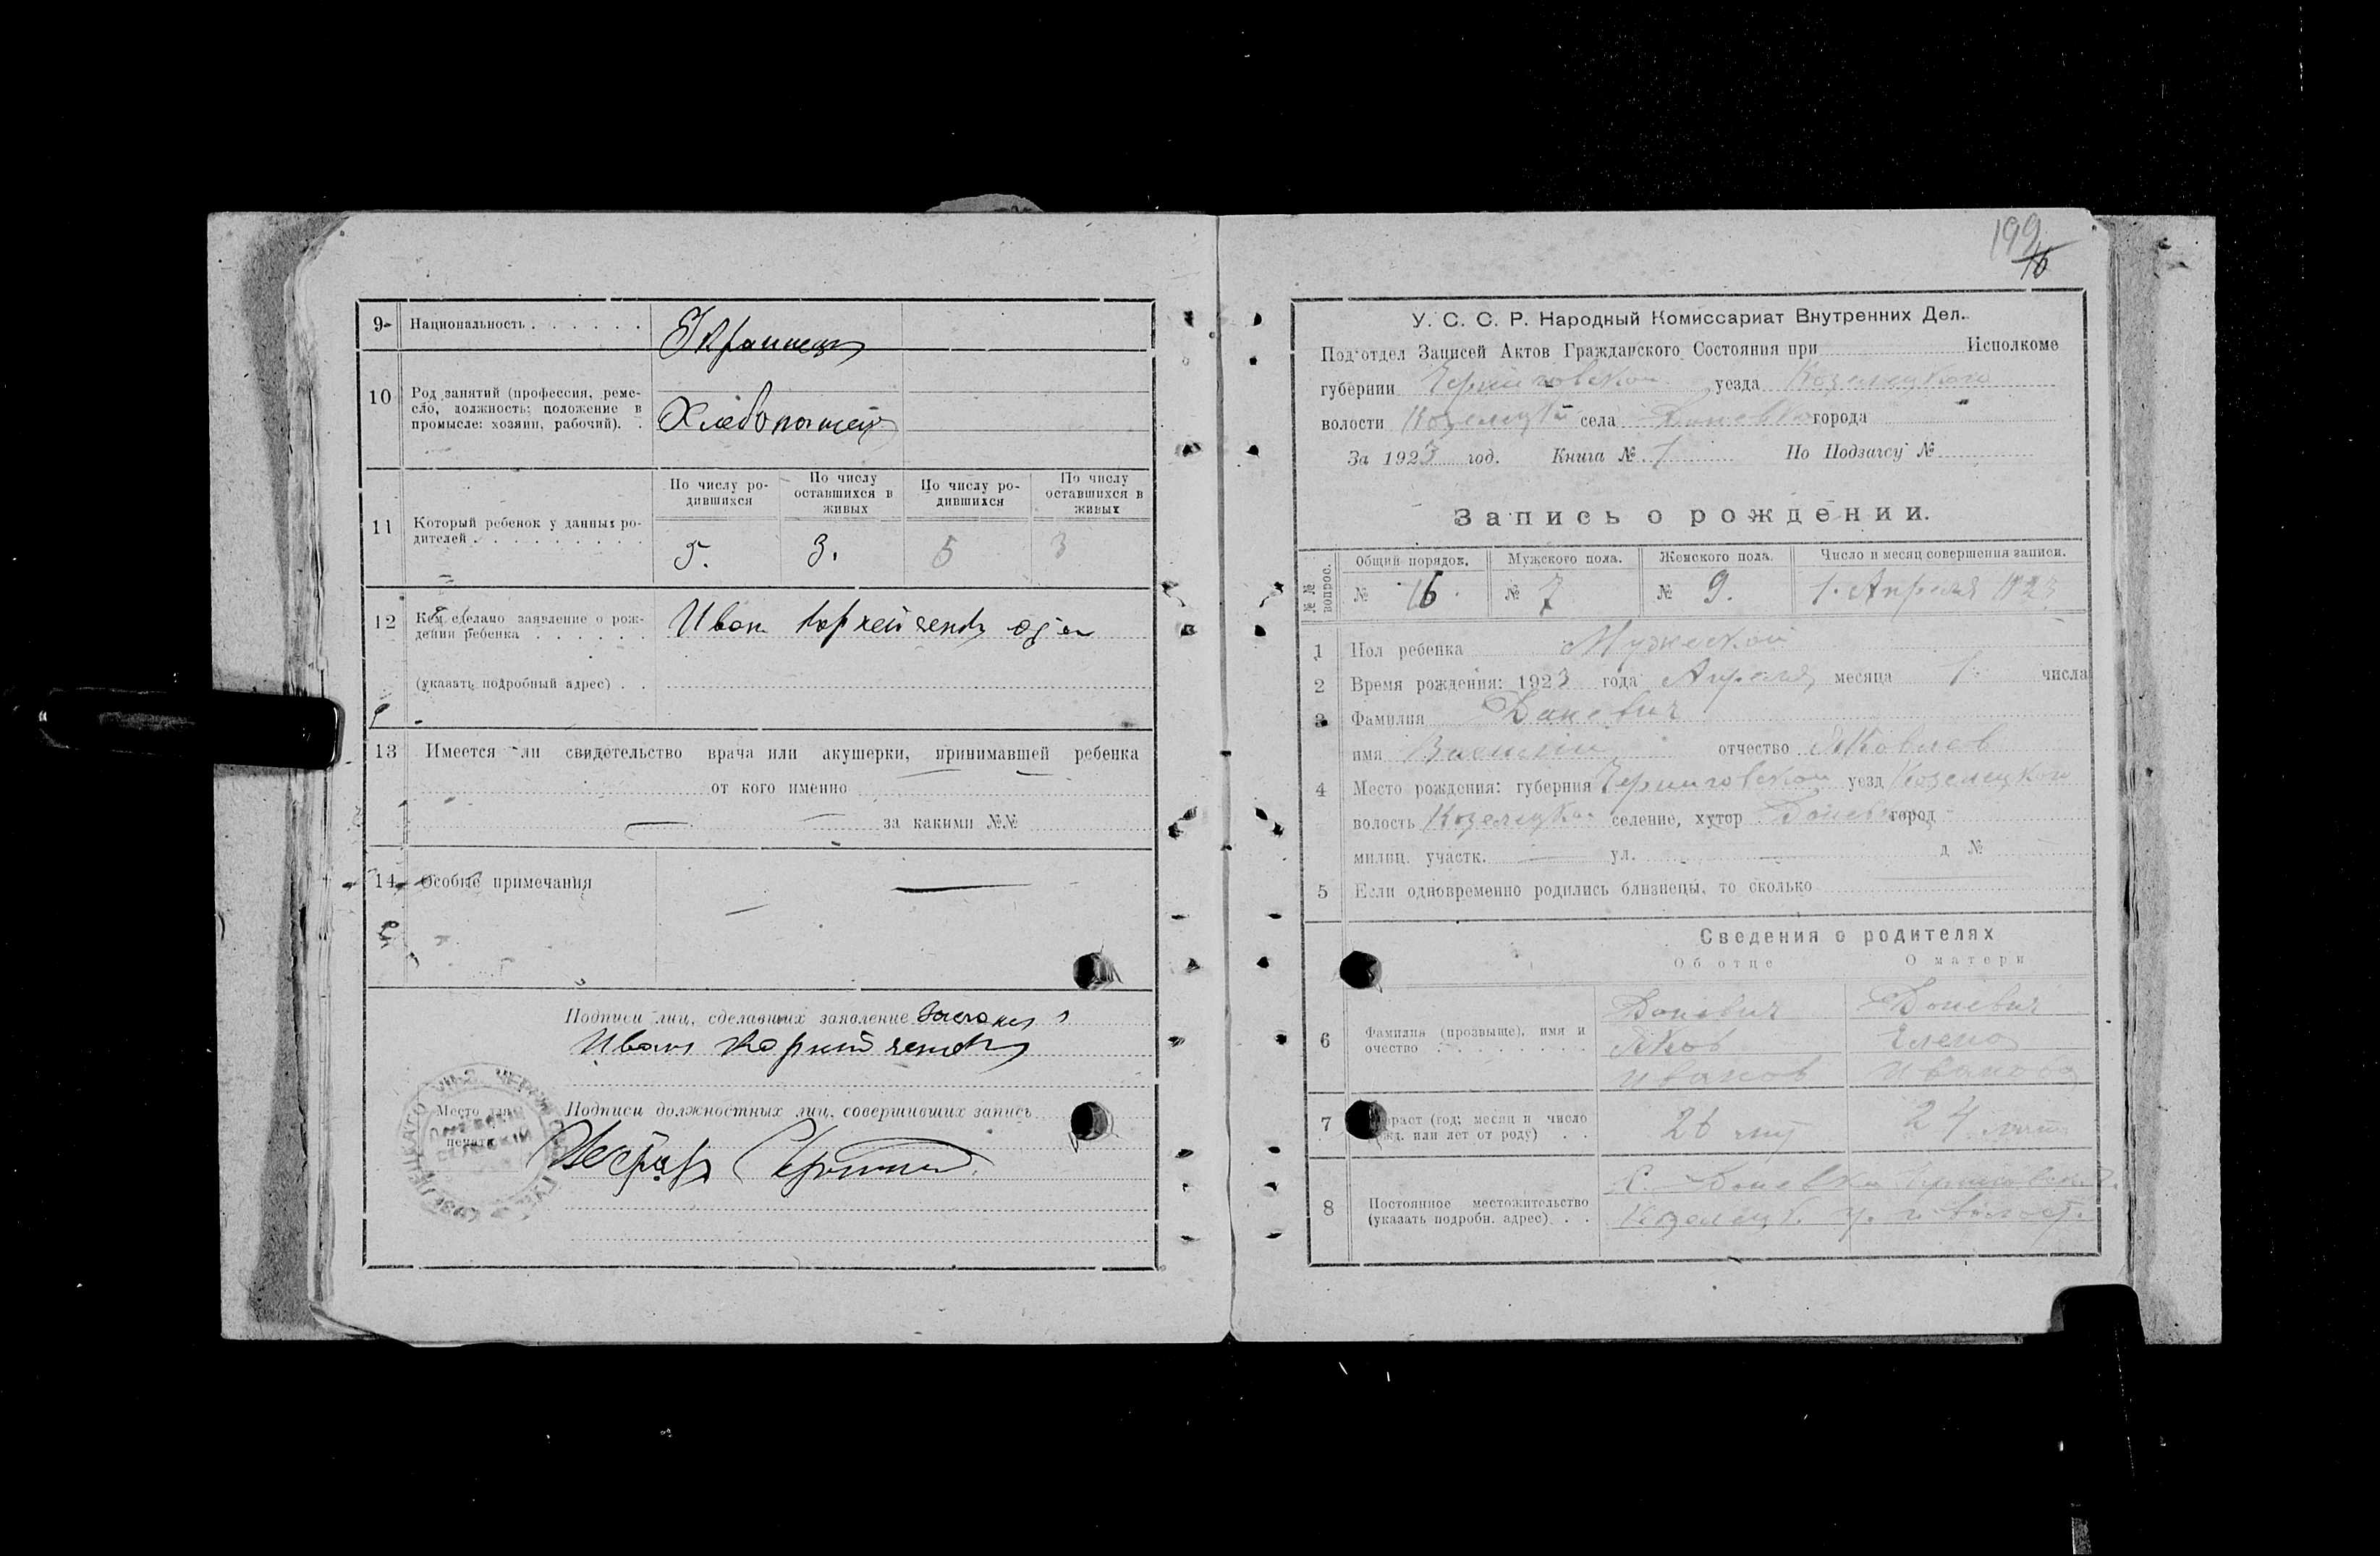 9
Национальность
Украинец
10
Род занятий (профессия, реме-
сло, должность; положение в
промысле: хозяин, рабочий).
Хлебопашец
11
Который ребенок у данных ро-
дителей
По числу ро-
дившихся
По числу
оставшихся в
живых
По числу ро-
дившихся
По числу
оставшихся в
живых
5. 3. 5 3
12
Кем сделано заявление о рож-
дении ребенка
Иван
(указать подробный адрес)
13 Имеется ли свидетельство врача или акушерки, принимавшей ребенка
от кого именно
за какими №№
14 Особые примечания
Подписи лиц, сделавших заявление
Иван
Место для
печати
Подписи должностных лиц, совершивших запись
199
16
У. С. С. Р. Народный Комиссариат Внутренних Дел.
Подотдел Записей Актов Гражданского Состояния при Исполкоме
губернии Черниговской уезда Козелецкого
волости Козелецкой села Даневка города
За 1923 год. Книга № 1 По Подзагсу №
Запись о рождении.
№№ вопрос.
Общий порядок. Мужского пола. Женского пола. Число и месяц совершения записи.
№ 16. № 7 № 9. 1. Апреля 1923
1 Пол ребенка Мужеской
2 Время рождения: 1923 года Апреля месяца 1 числа
3 Фамилия Даневич
имя Василий отчество Яковлев
4 Место рождения: губерния Черниговской уезд Козелецкого
волость Козелецкой селение, хутор Даневка город
милиц. участк. ул. д №
5 Если одновременно родились близнецы, то сколько
Сведения о родителях
Об отце О матери
6
Фамилия (прозвыще), имя и
очество
Даневич
Яков
Иванов
Даневич
Елена
Иванова
7
Возраст (год, месяц и число
рожд. или лет от роду)
26 лет
24 лет
8
Постоянное местожительство
(указать подробн. адрес)
С. Даневка Черниговск. г.
Козелецк. у. и волост.